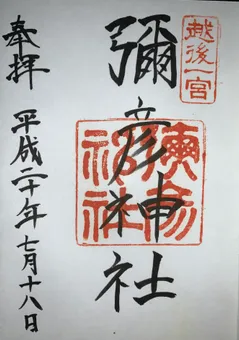 越後一宮
彌彦神社
彌彦神社
奉拝
平成二十年七月十八日